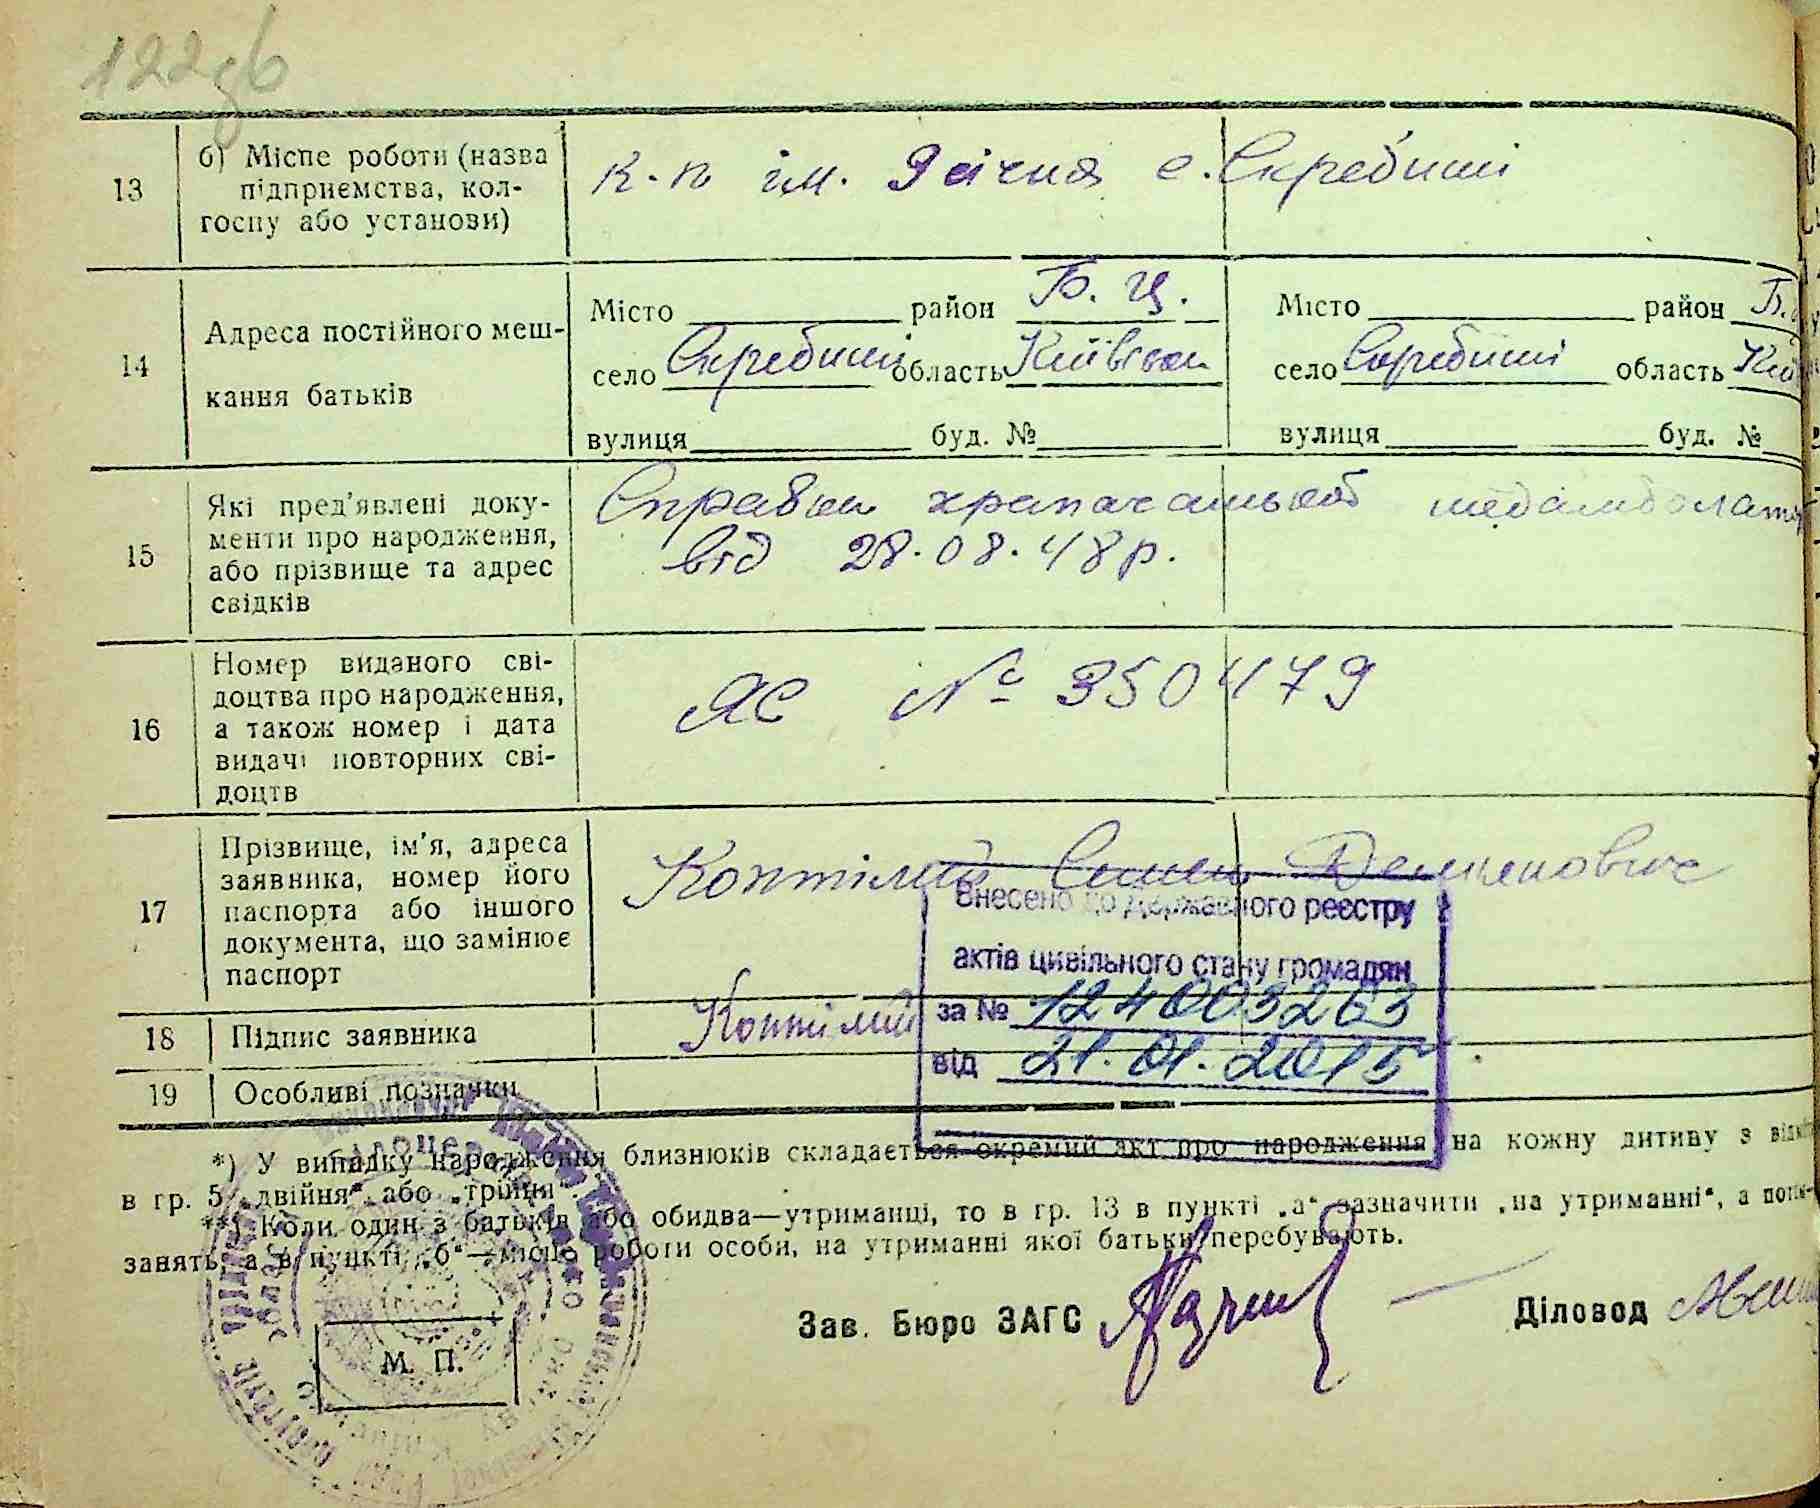 122зв
13
б) Місце роботи (назва
підприємства, кол-
госпу або установи)
к-п ім. 9 січня с. Скребиші
14
Адреса постійного меш-
кання батьків
Місто район Б. Ц.
село Скребиші область Київськ
вулиця буд. №
Місто район Б.
село Скребиші область Киї
вулиця буд. №
15
Які пред'явлені доку-
менти про народження,
або прізвище та адрес
свідків
Справка
від 28.08.48 р.
16
Номер виданого сві-
доцтва про народження,
а також номер і дата
видачі повторних сві-
доцтв
ЯС № 350479
17
Прізвище, ім'я, адреса
заявника, номер його
паспорта або іншого
документа, що замінює
паспорт
Коптілий Семен Демянович
Внесено до Державного реєстру
актів цивільного стану громадян
за № 124003263
від 21.01.2015
18
Підпис заявника
Коптілий
19
Особливі позначки
*) У випадку народження близнюків складається окремий акт про народження на кожну дитину з
в гр. 5 „двійня“ або „трійня“.
**) Коли один з батьків або обидва—утриманці, то в гр. 13 в пункті „а“ зазначити „на утриманні“, а
занять, а в пункті „б“—місце роботи особи, на утриманні якої батьки перебувають.
Зав. Бюро ЗАГС
Діловод
М. П.